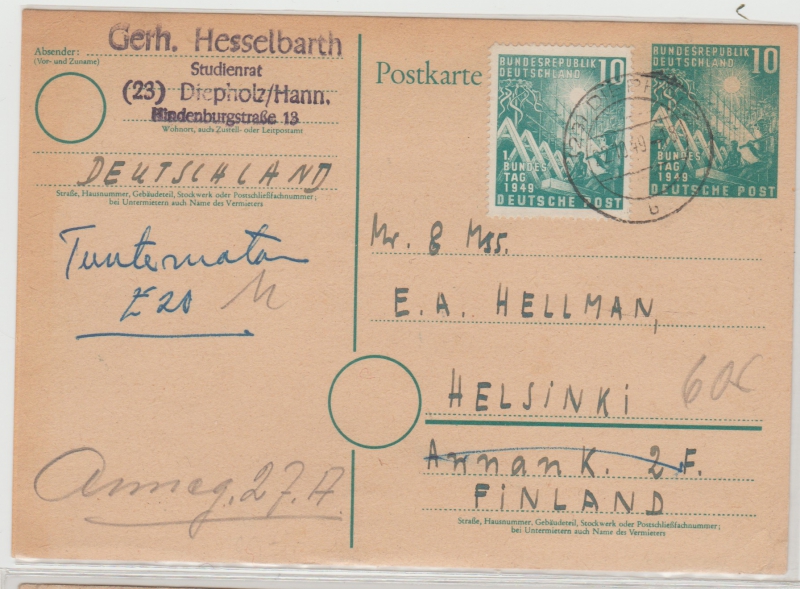 Gerh. Hesselbarth
Absender:
(Vor- und Zuname)
Studienrat
(23) Diepholz/Hann.
Hindenburgstraße 13
Wohnort, auch Zustell- oder Leitpostamt
DEUTSCHLAND
Straße, Hausnummer, Gebäudeteil, Stockwerk oder Postschließfachnummer;
bei Untermietern auch Name des Vermieters
Tuntematon
E 20
Anneg. 27. A
Postkarte
BUNDESREPUBLIK
DEUTSCHLAND
10
1.
BUNDES
TAG
1949
DEUTSCHE POST
BUNDESREPUBLIK
DEUTSCHLAND
10
1.
BUNDES
TAG
1949
DEUTSCHE POST
49
b
Mr. & Mss.
E. A. HELLMAN,
HELSINKI
Annank. 2 F.
FINLAND
Straße, Hausnummer, Gebäudeteil, Stockwerk oder Postschließfachnummer;
bei Untermietern auch Name des Vermieters